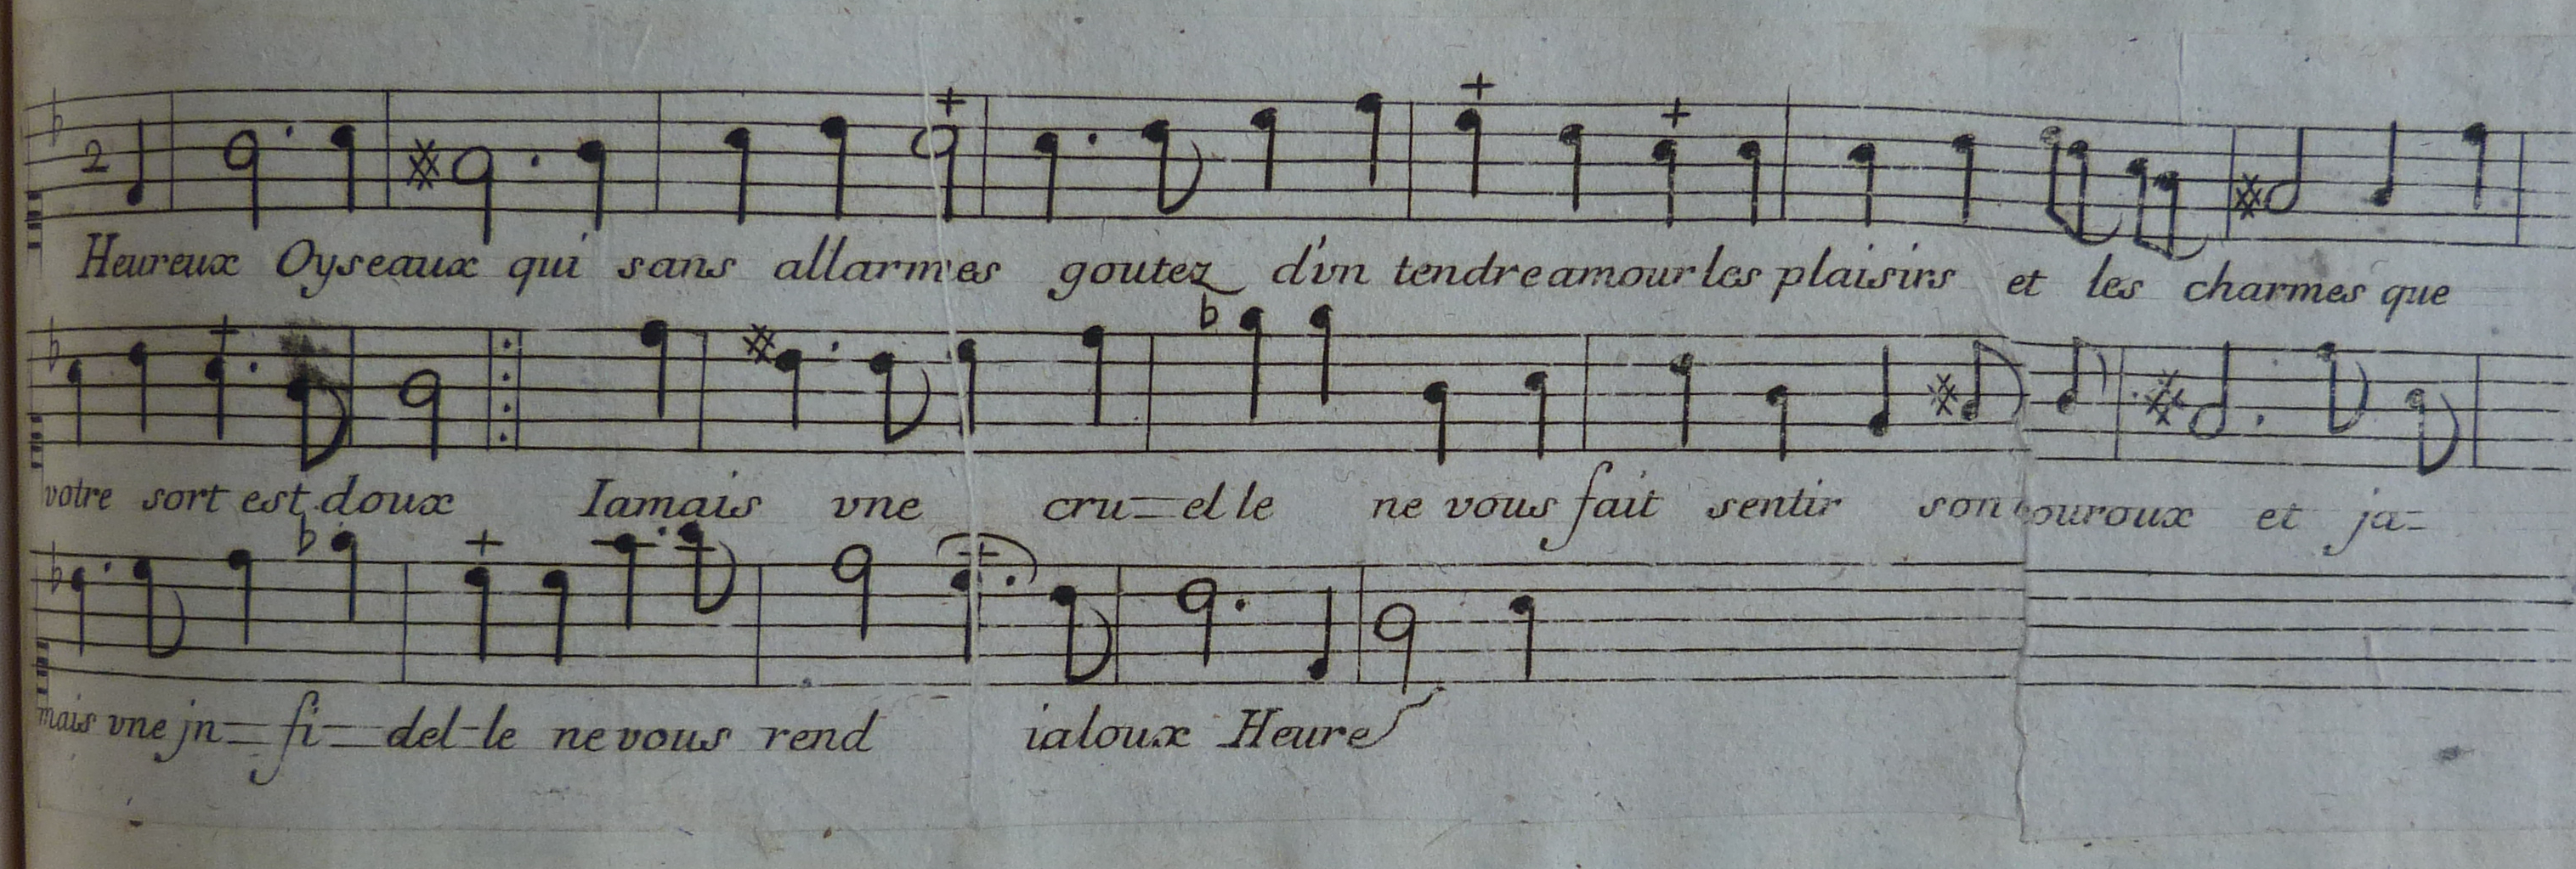 2
Heureux Oyseaux qui sans allarmes goutez d'vn tendre amour les plaisirs et les charmes que
votre sort est doux Iamais vne cru=elle ne vous fait sentir son couroux et ja=
mais vne jn=fi=del-le ne vous rend ialoux Heure